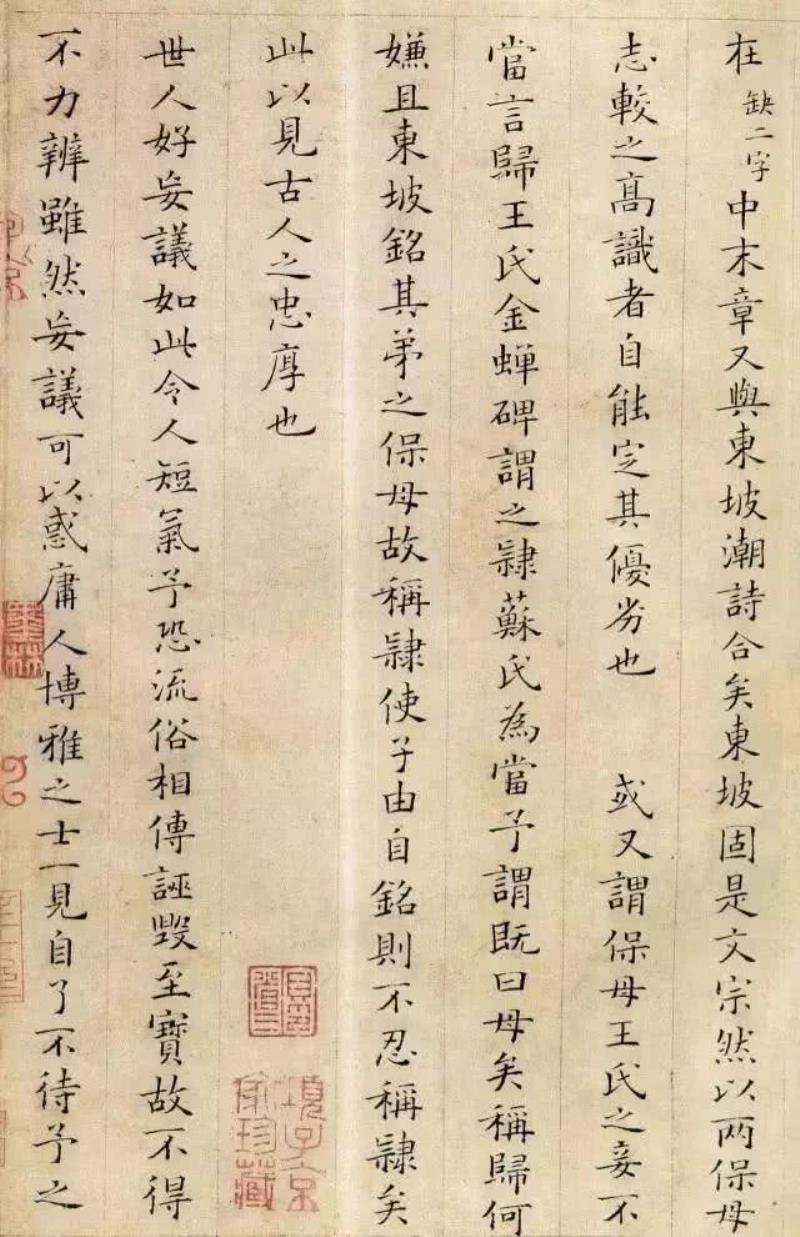 在缺二字中末章又與東坡潮詩合矣東坡固是文宗然以两保母
志較之髙識者自能定其優劣也 或又謂保母王氏之妾不
當言歸王氏金蟬碑謂之隷蘇氏為當予謂既曰母矣稱歸何
嫌且東坡銘其弟之保母故稱隷使子由自銘則不忍稱隷矣
此以見古人之忠厚也
項子京
家珍藏
世人好妄議如此令人短氣予恐流俗相傳誣毀至寶故不得
不力辨雖然妄議可以惑庸人博雅之士一見自了不待予之